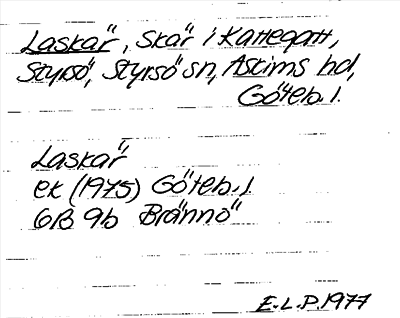 Laskär, Skär i Kattegatt,
Styrsö, Styrsö sn, Askims hd,
Göteb. l.
Laskär
ek (1975) Göteb. l
6B 9b Brännö
E.L.P. 1977